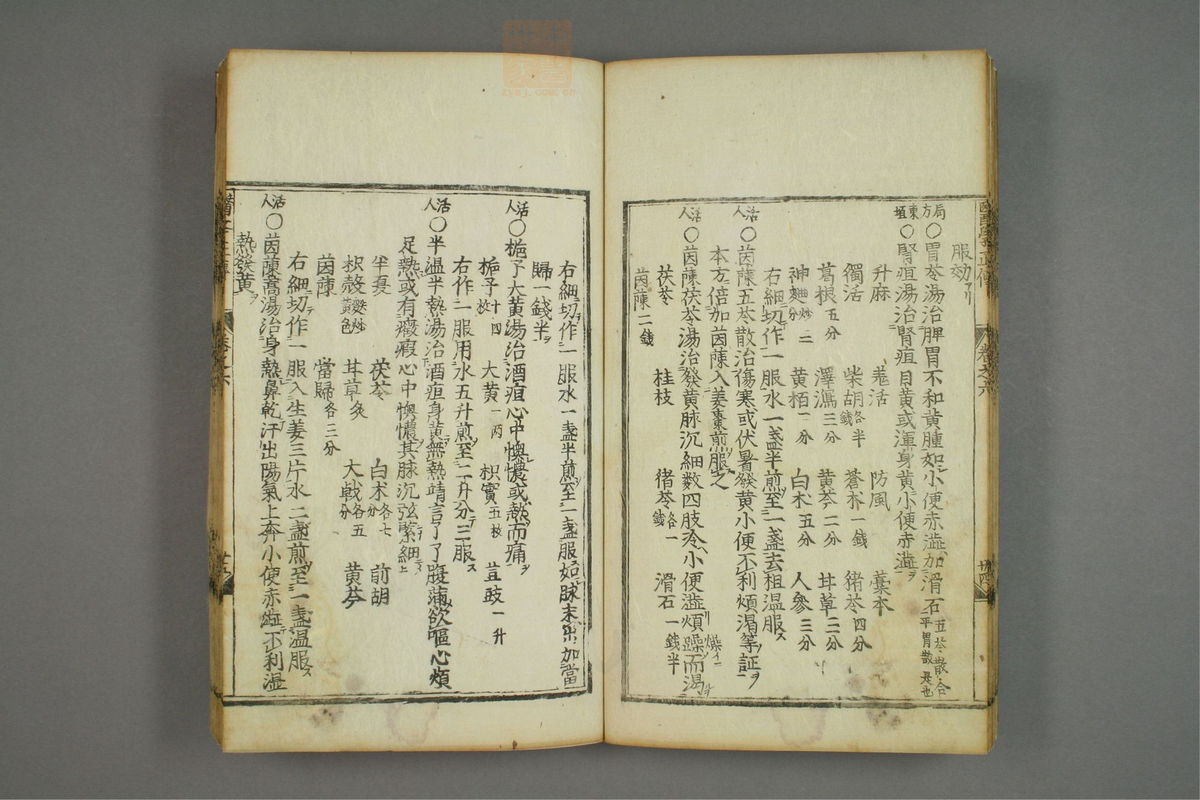 服効アリ
局方〇胃苓湯治脾胃不和黃腫如小便赤澁加滑石五苓散合平胃散是也
東垣〇腎疸湯治腎疸目黃或渾身黃小便赤澁
升麻 羗活 防風 藁本
獨活 柴胡各半錢 蒼朮一錢 猪苓四分
葛根五分 澤瀉三分 黃芩二分 甘草二分
神麯麯炒三分 黃栢一分 白朮五分 人參三分
右細切作一服水一盞半煎至一盞去柤溫服
活人〇茵蔯五苓散治傷寒或伏暑發黃小便不利煩渴等証
本方倍加茵蔯入姜棗煎服之
活人〇茵蔯茯苓湯治發黃脉沉細數四肢冷小便澁煩躁而渴
茯苓 桂枝 猪苓各一錢 滑石一錢半
茵蔯二錢
右細切作一服水一盞半煎至一盞服如脉未出加當
歸一錢半
活人〇梔子大黃湯治酒疸心中懊憹或熱而痛
梔子十四枚 大黃一兩 枳實五枚 豆豉一升
右作一服用水五升煎至二升分三服
活人〇半溫半熱湯治酒疸身黃無熱靖言了了腹滿欲嘔心煩
足熱或有癥瘕心中懊憹其脉沉弦緊細
半夏 茯苓 白朮各七分 前胡
枳殼麩炒黃色 甘草炙 大戟各五分 黃芩
茵蔯 當歸各三分
右細切作一服入生姜三片水二盞煎至一盞溫服
活人〇茵蔯蒿湯治身熱鼻乾汗出陽氣上奔小便赤澁不利濕
熱發黃
卷之六